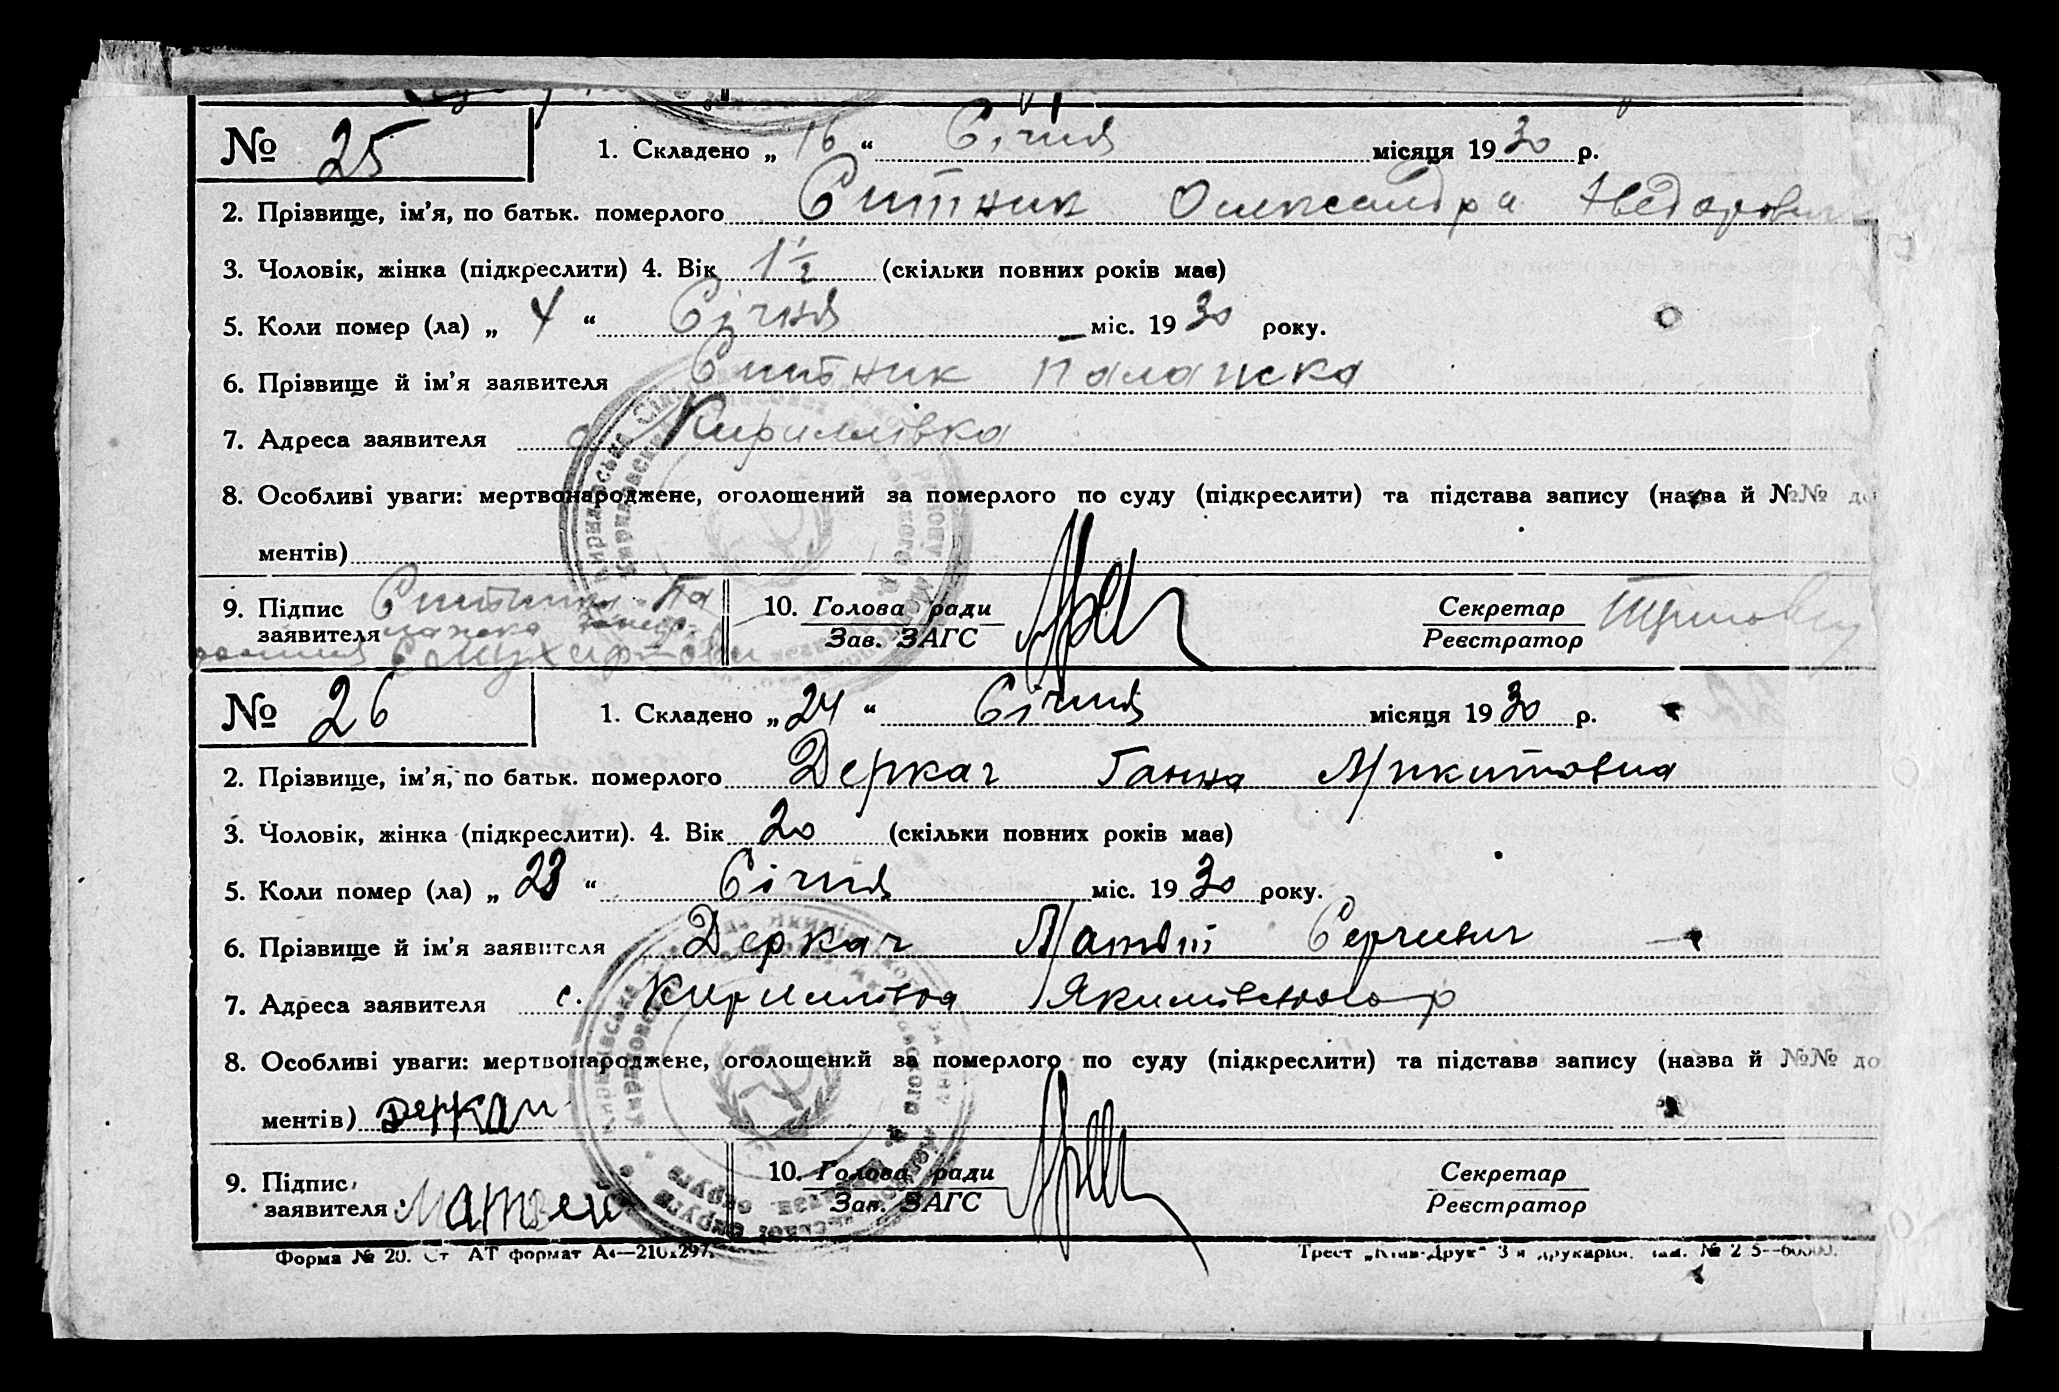 № 25 1. Складено „ 16 “ Січня місяця 1930 р.
2. Прізвище, ім'я, по батьк. померлого Ситник Олександра
3. Чоловік, жінка (підкреслити) 4. Вік 1½ (скільки повних років має)
5. Коли помер (ла) „ 4 “ Січня міс. 1930 року.
6. Прізвище й ім'я заявителя Ситник Палажка
7. Адреса заявителя Кириллівка
8. Особливі уваги: мертвонароджене, оголошений за померлого по суду (підкреслити) та підстава запису (назва й №№ до
ментів)
9. Підпис заявителя Ситник Палажка
10. Голова ради Зав. ЗАГС
Секретар Реєстратор
№ 26 1. Складено „ 24 “ Січня місяця 1930 р.
2. Прізвище, ім'я, по батьк. померлого Деркач Ганна Микитовна
3. Чоловік, жінка (підкреслити). 4. Вік 20 (скільки повних років має)
5. Коли помер (ла) „ 23 “ Січня міс. 1930 року.
6. Прізвище й ім'я заявителя Деркач Матвій Сергиевич
7. Адреса заявителя с. Кириллівка Якимівського р
8. Особливі уваги: мертвонароджене, оголошений за померлого по суду (підкреслити) та підстава запису (назва й №№ до
ментів) Деркач
9. Підпис заявителя Матвей
10. Голова ради Зав. ЗАГС
Секретар Реєстратор
Форма № 20. Ст АТ формат А4—210x297. Трест „Київ-Друк“ 3-я друкарня.